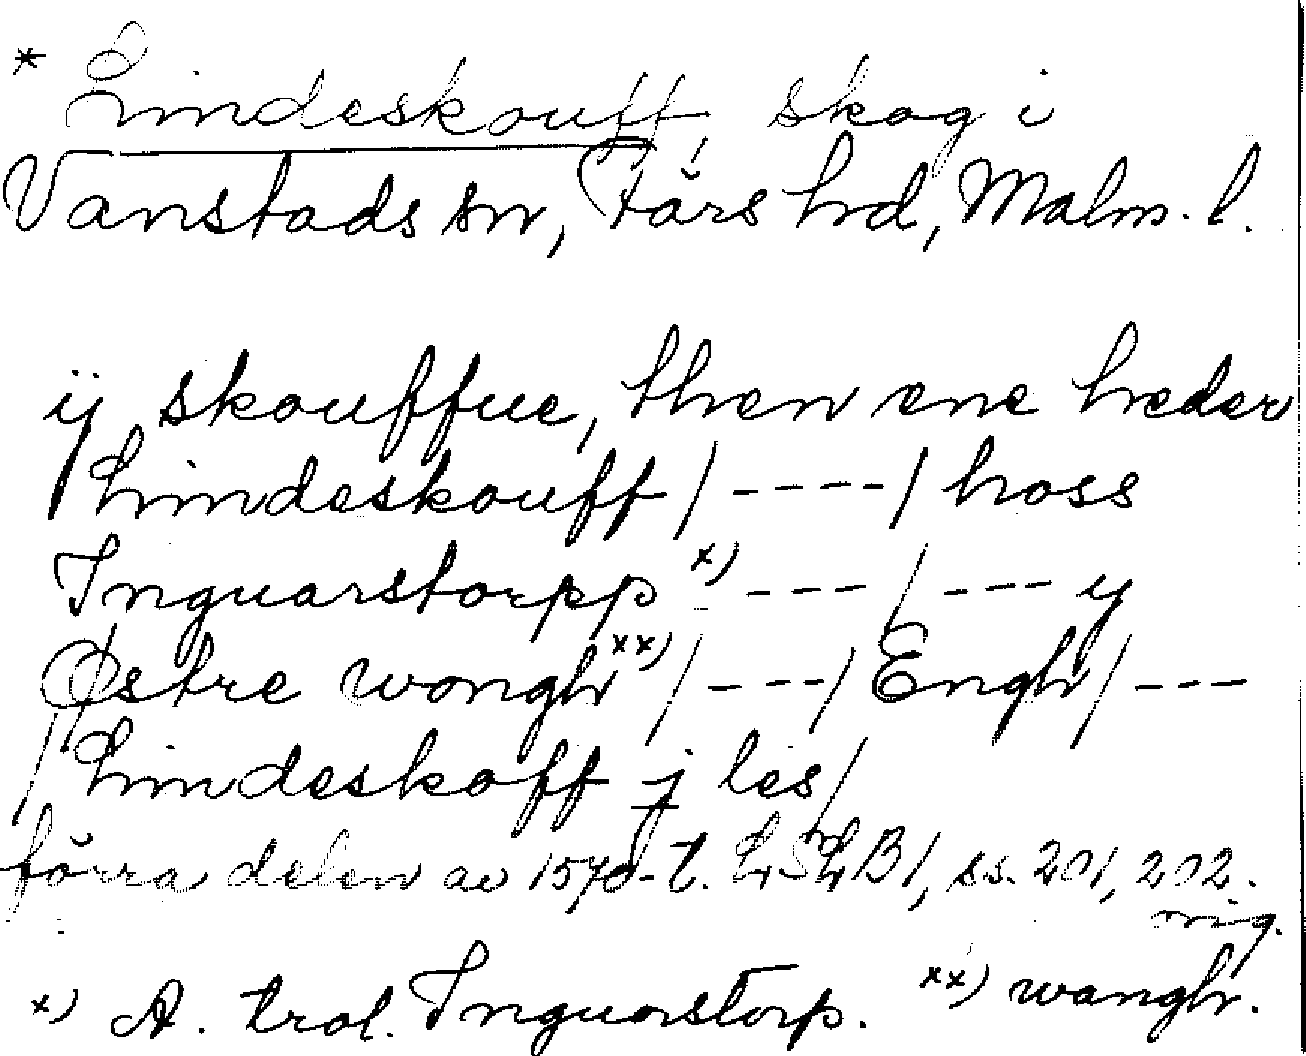 * Lindeskouff, skog i
Vanstads sn, Färs hd, Malm. l.
ij skouffue, then ene heder
Lindeskouff / ---- / hoss
Inguarstorpp x) --- / --- ij
Østre wongh xx) / --- / Engh / ---
/ Lindeskoff j les /
förra delen av 1570-t. LSLB1, ss. 201, 202.
orig.
x) A. trol. Inguorstorp. xx) wangh.